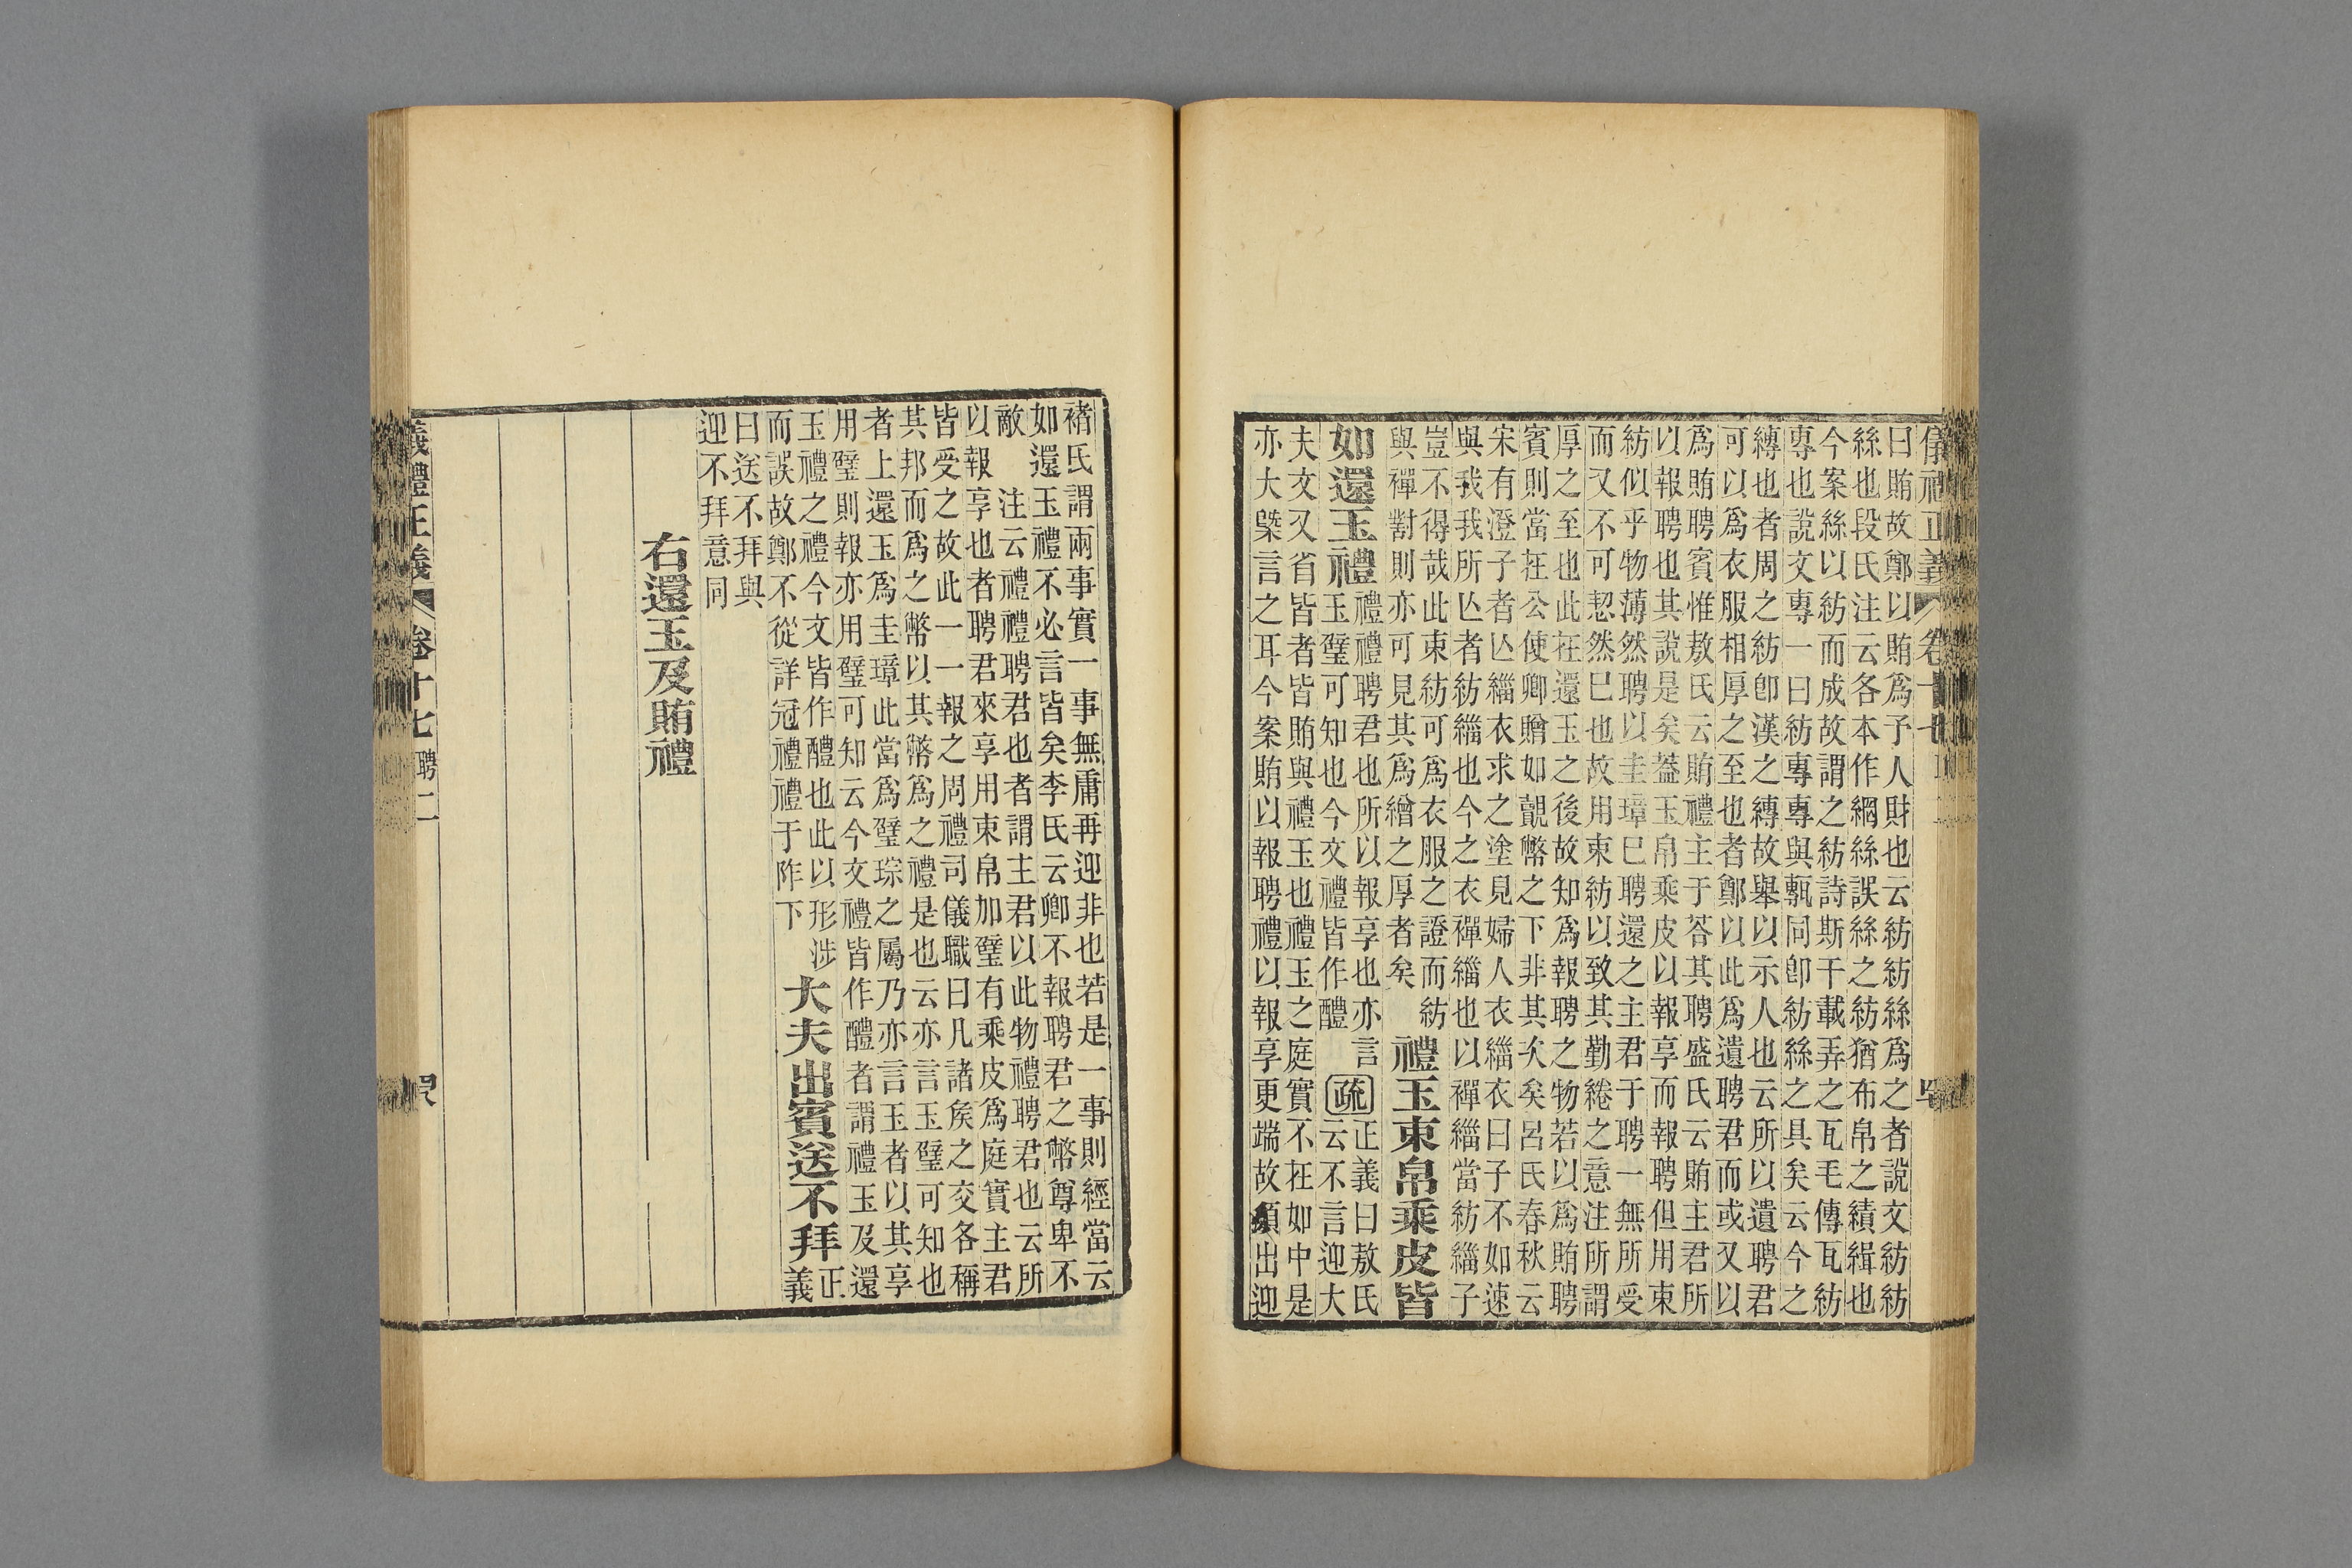 儀禮正義 卷十七
曰賄故鄭以賄爲予人財也云紡紡絲爲之者說文紡紡
絲也段氏注云各本作網絲誤絲之紡猶布帛之績緝也
今案絲以紡而成故謂之紡詩斯干載弄之瓦毛傳瓦紡
專也說文專一曰紡專專與甎同卽紡絲之具矣云今之
縳也者周之紡卽漢之縳故舉以示人也云所以遺聘君
可以爲衣服相厚之至也者鄭以此爲遺聘君而或又以
爲賄聘賓惟敖氏云賄禮主于荅其聘盛氏云賄主君所
以報聘也其說是矣葢玉帛乘皮以報享而報聘但用束
紡似乎物薄然聘以圭璋巳聘還之主君于聘一無所受
而又不可恝然巳也故用束紡以致其勤綣之意注所謂
厚之至也此在還玉之後故知爲報聘之物若以爲賄聘
賓則當在公使卿贈如覿幣之下非其次矣呂氏春秋云
宋有澄子者亾緇衣求之塗見婦人衣緇衣曰子不如速
與我我所亾者紡緇也今之衣襌緇也以襌緇當紡緇子
豈不得哉此束紡可爲衣服之證而紡
與襌對則亦可見其爲繒之厚者矣
禮玉束帛乘皮皆
如還玉禮
禮禮聘君也所以報享也亦言
玉璧可知也今文禮皆作醴
疏
正義曰敖氏
云不言迎大
夫文又省皆者皆賄與禮玉也禮玉之庭實不在如中是
亦大槩言之耳今案賄以報聘禮以報享更端故須出迎
褚氏謂兩事實一事無庸再迎非也若是一事則經當云
如還玉禮不必言皆矣李氏云卿不報聘君之幣尊卑不
敵 注云禮禮聘君也者謂主君以此物禮聘君也云所
以報享也者聘君來享用束帛加璧有乘皮爲庭實主君
皆受之故此一一報之周禮司儀職曰凡諸矦之交各稱
其邦而爲之幣以其幣爲之禮是也云亦言玉璧可知也
者上還玉爲圭璋此當爲璧琮之屬乃亦言玉者以其享
用璧則報亦用璧可知云今文禮皆作醴者謂禮玉及還
玉禮之禮今文皆作醴也此以形涉
而誤故鄭不從詳冠禮禮于阼下
大夫出賓送不拜
正
義
曰送不拜與
迎不拜意同
右還玉及賄禮
儀禮正義 卷十七 聘二